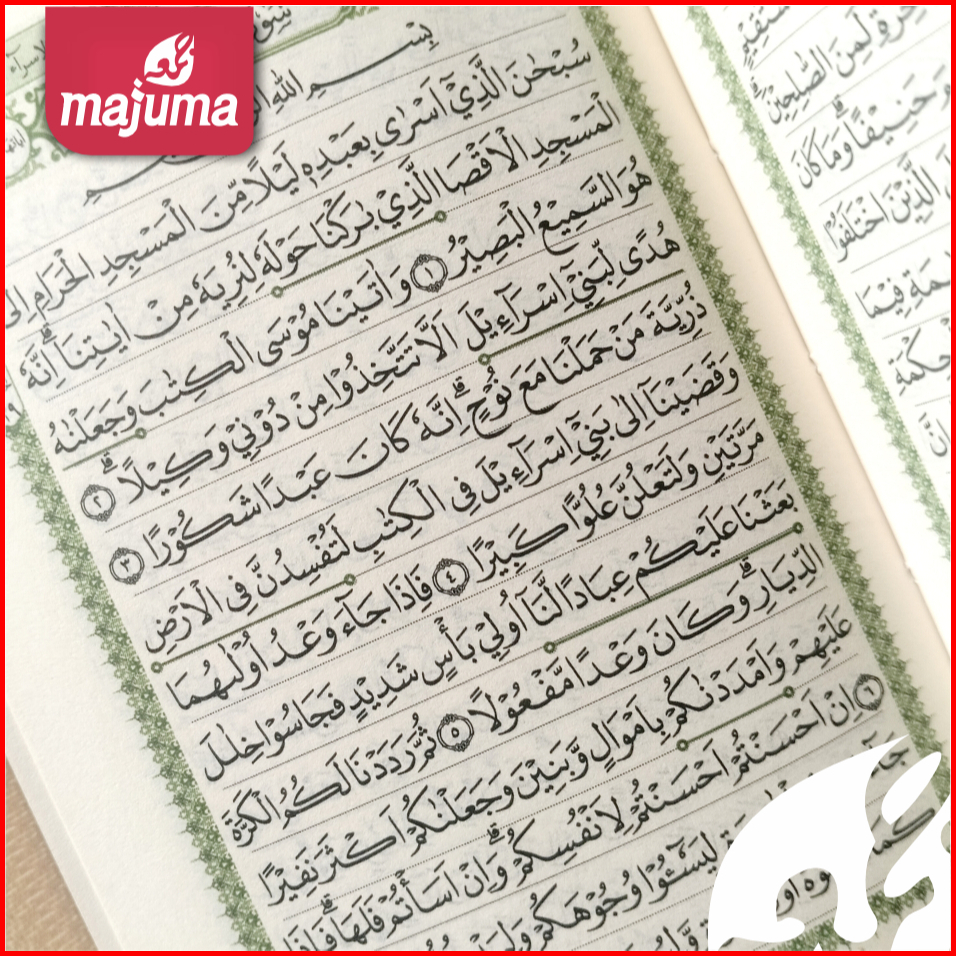 majuma
بِسْمِ اللّٰهِ
سُبْحٰنَ الَّذِيْٓ اَسْرٰى بِعَبْدِهٖ لَيْلًا مِّنَ الْمَسْجِدِ الْحَرَامِ اِلَى
الْمَسْجِدِ الْاَقْصَا الَّذِيْ بٰرَكْنَا حَوْلَهٗ لِنُرِيَهٗ مِنْ اٰيٰتِنَاۗ اِنَّهٗ
هُوَ السَّمِيْعُ الْبَصِيْرُ ١ وَاٰتَيْنَا مُوْسَى الْكِتٰبَ وَجَعَلْنٰهُ
هُدًى لِّبَنِيْٓ اِسْرَاۤءِيْلَ اَلَّا تَتَّخِذُوْا مِنْ دُوْنِيْ وَكِيْلًاۗ ٢
ذُرِّيَّةَ مَنْ حَمَلْنَا مَعَ نُوْحٍۗ اِنَّهٗ كَانَ عَبْدًا شَكُوْرًا ٣
وَقَضَيْنَآ اِلٰى بَنِيْٓ اِسْرَاۤءِيْلَ فِى الْكِتٰبِ لَتُفْسِدُنَّ فِى الْاَرْضِ
مَرَّتَيْنِ وَلَتَعْلُنَّ عُلُوًّا كَبِيْرًا ٤ فَاِذَا جَاۤءَ وَعْدُ اُوْلٰىهُمَا
بَعَثْنَا عَلَيْكُمْ عِبَادًا لَّنَآ اُولِيْ بَأْسٍ شَدِيْدٍ فَجَاسُوْا خِلٰلَ
الدِّيَارِۗ وَكَانَ وَعْدًا مَّفْعُوْلًا ٥ ثُمَّ رَدَدْنَا لَكُمُ الْكَرَّةَ
عَلَيْهِمْ وَاَمْدَدْنٰكُمْ بِاَمْوَالٍ وَّبَنِيْنَ وَجَعَلْنٰكُمْ اَكْثَرَ نَفِيْرًا ٦
اِنْ اَحْسَنْتُمْ اَحْسَنْتُمْ لِاَنْفُسِكُمْۗ وَاِنْ اَسَأْتُمْ فَلَهَاۗ فَاِذَا
لِيَسٗۤـُٔوْا وُجُوْهَكُمْ
لَمِنَ الصّٰلِحِيْنَ
حَنِيْفًاۗ وَمَا كَانَ
الَّذِيْنَ اخْتَلَفُوْا
فِيْمَا